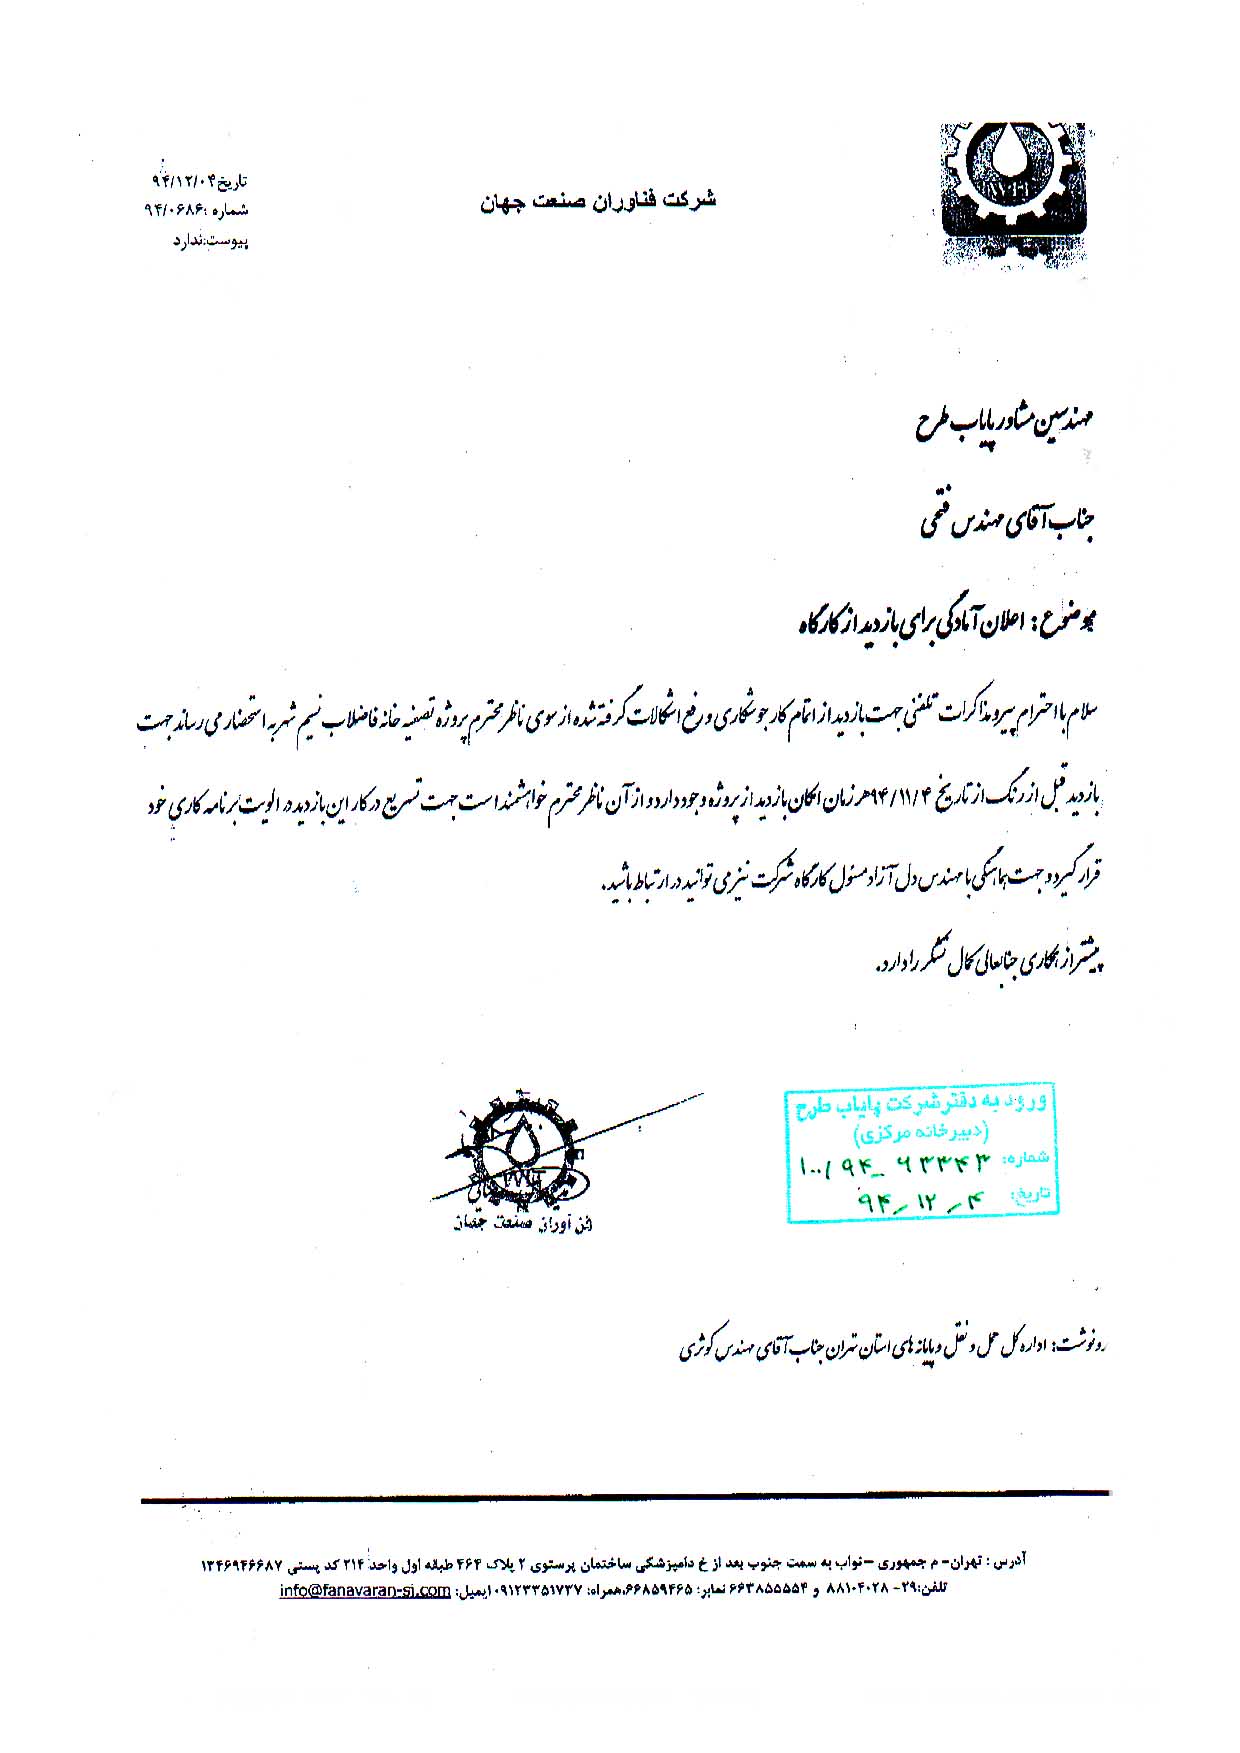 شرکت فناوران صنعت جهان
تاریخ:۹۴/۱۲/۰۴
شماره :۹۴/۰۶۸۶
پیوست:ندارد
مهندسین مشاور پایاب طرح
جناب آقای مهندس فتحی
موضوع : اعلان آمادگی برای بازدید از کارگاه
سلام با احترام پیرو مذاکرات تلفنی جهت بازدید از اتمام کار جوشکاری و رفع اشکالات گرفته شده از سوی ناظر محترم پروژه تصفیه خانه فاضلاب نسیم شهر به استحضار می رساند جهت
بازدید قبل از رنگ از تاریخ ۹۴/۱۱/۴ هر زمان امکان بازدید از پروژه وجود دارد و از آن ناظر محترم خواهشمند است جهت تسریع در کار این بازدید در الویت برنامه کاری خود
قرار گیرد و جهت هماهنگی با مهندس دل آزاد مسئول کارگاه شرکت نیز می توانید در ارتباط باشید.
پیشتر از همکاری جنابعالی کمال تشکر را دارد.
ورود به دفتر شرکت پایاب طرح
(دبیرخانه مرکزی)
شماره: ۱۰۰/۹۴-۶۳۳۴۳
تاریخ: ۹۴-۱۲-۴
فن آوران صنعت جهان
رونوشت: اداره کل حمل و نقل و پایانه های استان تهران جناب آقای مهندس کوثری
آدرس : تهران- م جمهوری -نواب به سمت جنوب بعد از خ دامپزشکی ساختمان پرستوی ۲ پلاک ۴۶۴ طبقه اول واحد ۲۱۴ کد پستی ۱۳۴۶۹۴۶۶۸۷
تلفن:۲۹- ۸۸۱۰۴۰۲۸ و ۶۶۳۸۵۵۵۴ نمابر: ۶۶۸۵۹۴۶۵،همراه: ۰۹۱۲۳۳۵۱۷۳۷ ایمیل: info@fanavaran-sj.com